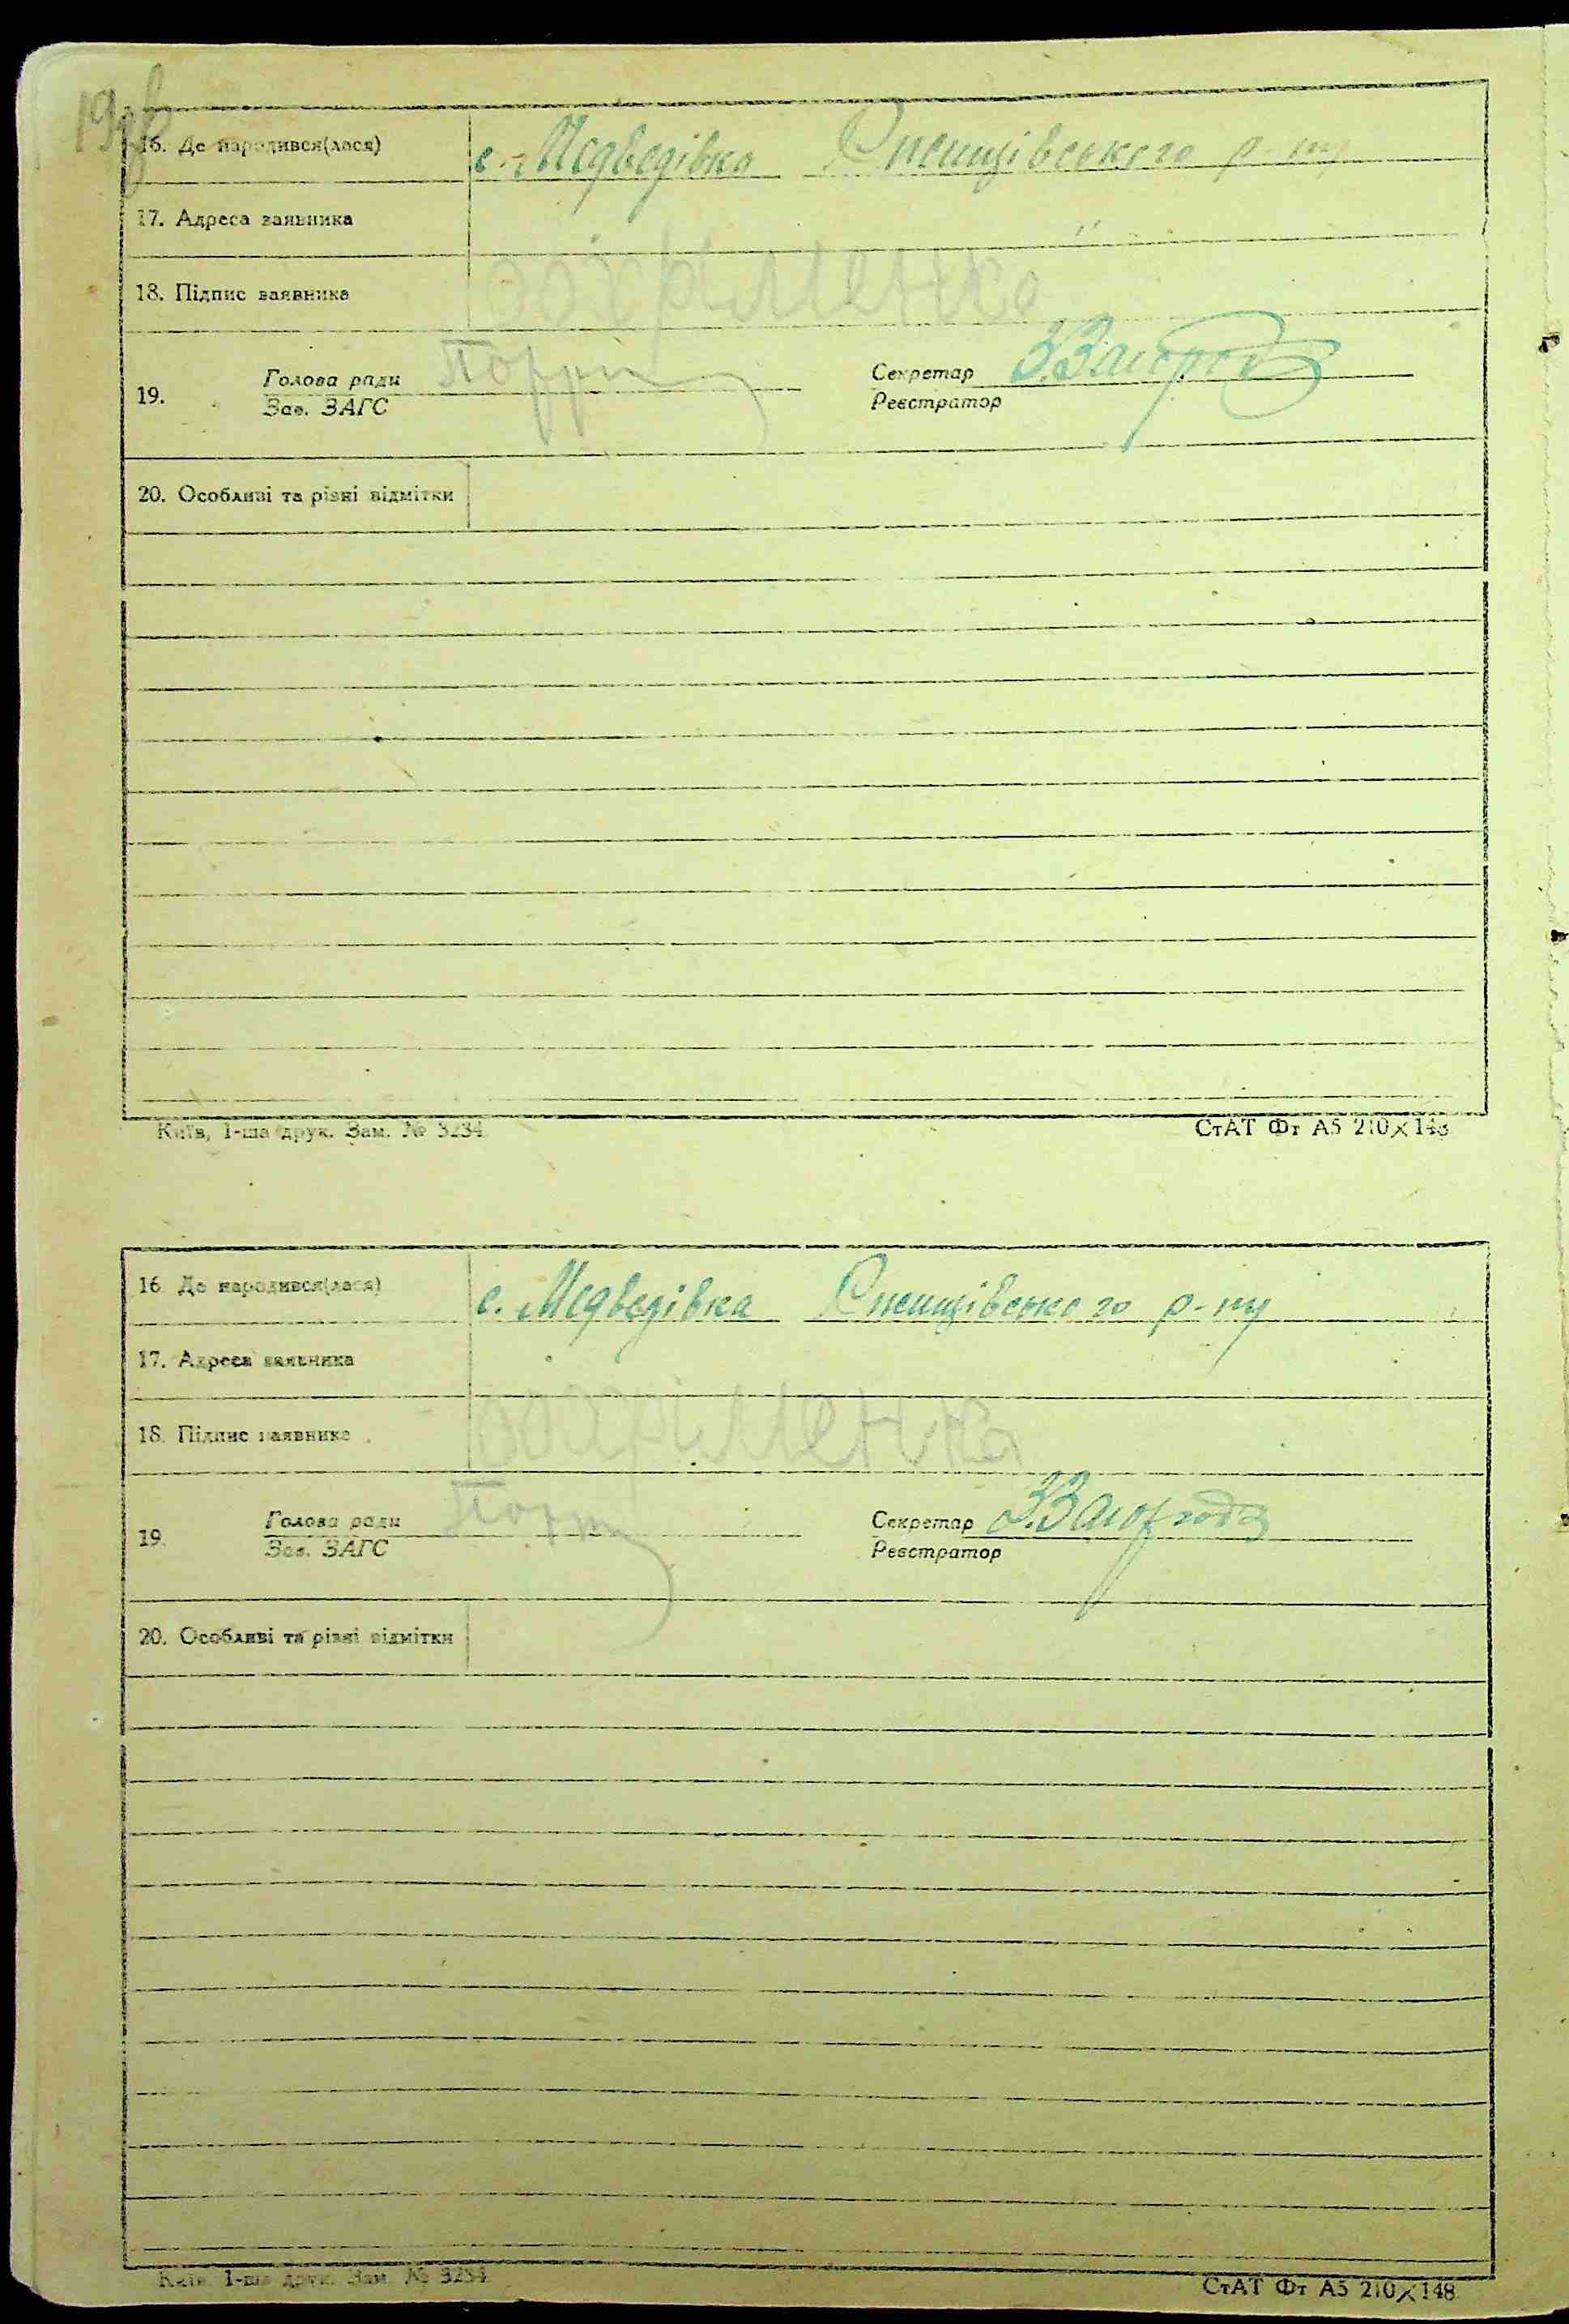 16. Де народився(лася) с. Медведівка Снєпщівського р-ну
17. Адреса заявника "
18. Підпис заявника Охріменко
19. Голова ради Секретар З.Загород
Зав. ЗАГС Реєстратор
20. Особливі та різні відмітки
Київ, 1-ша друк. Зам. № 3234 СтАТ Фт А5 210×148
16. Де народився(лася) с. Медведівка р-ну
17. Адреса заявника
18. Підпис заявника Охріменко
19. Голова ради Секретар З.Загорода
Зав. ЗАГС Реєстратор
20. Особливі та різні відмітки
Київ, 1-ша друк. Зам. № 3234 СтАТ Фт А5 210×148